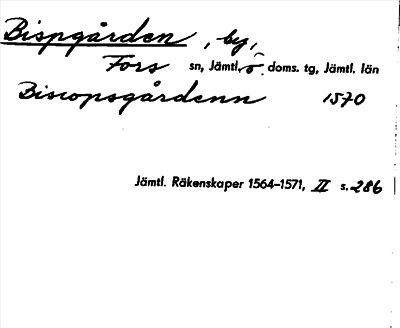 Bispgården, by,
Fors sn, Jämtl. ö. doms. tg, Jämtl. län
Biscopsgårdenn 1570
Jämtl. Räkenskaper 1564–1571, II s. 286